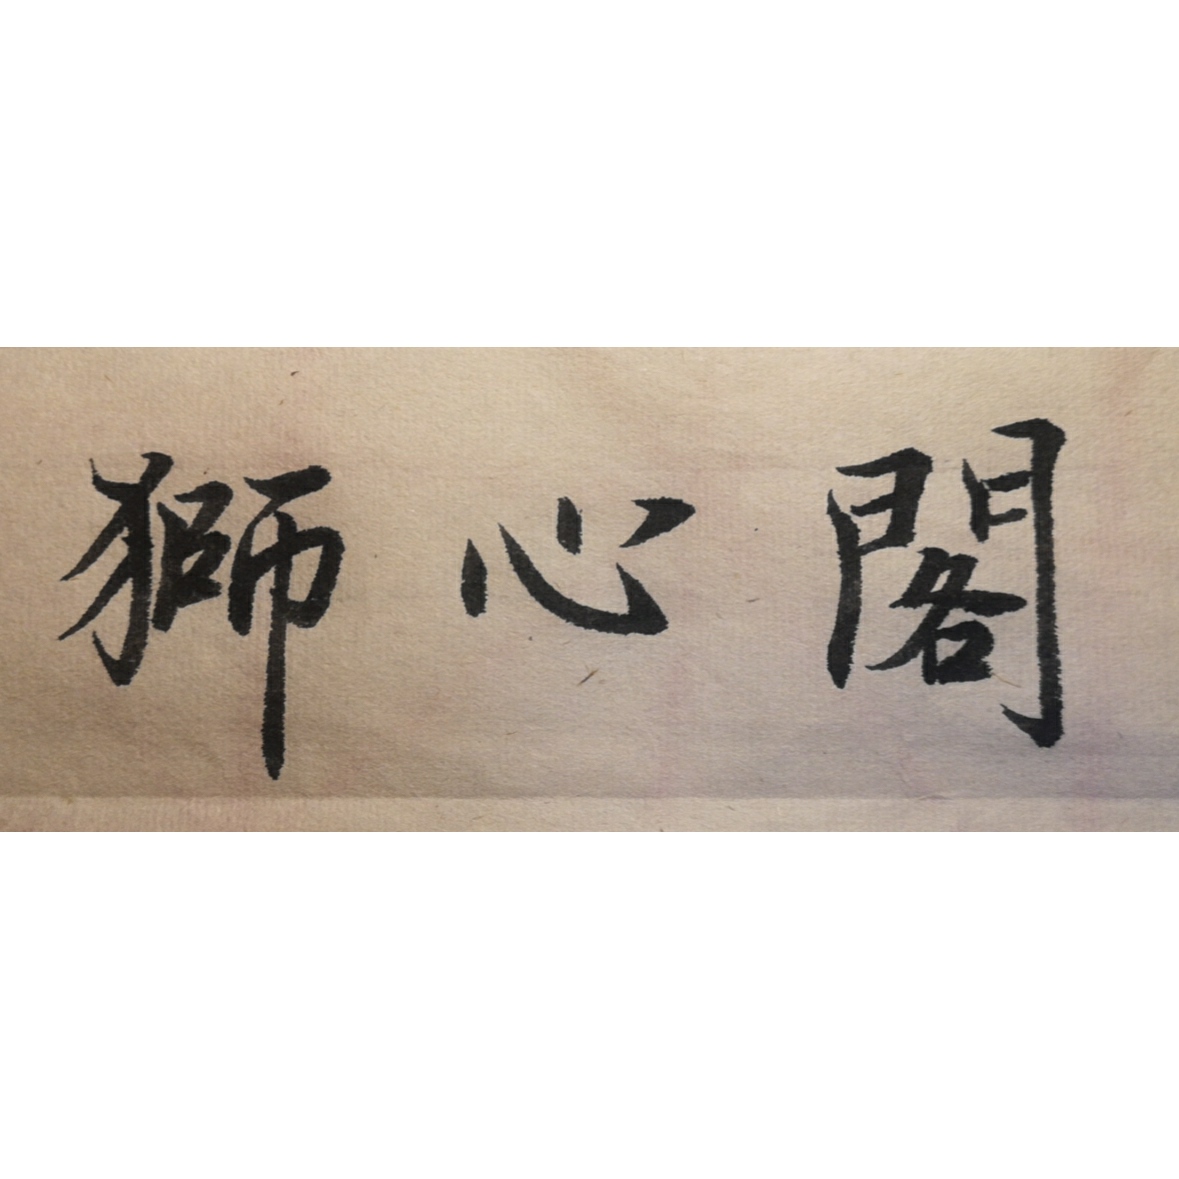 獅心閣